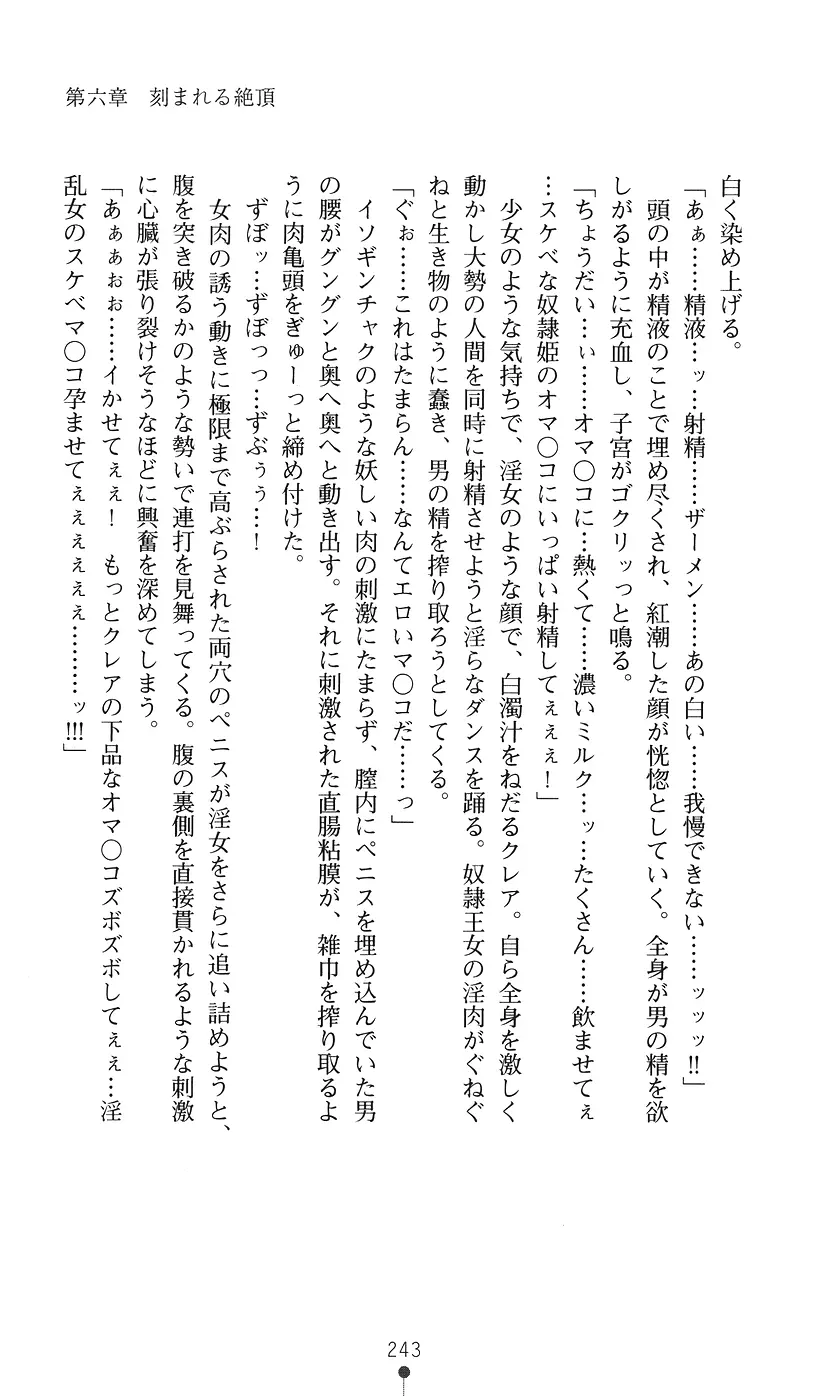 第六章　刻まれる絶頂
白く染め上げる。
「あぁ……精液…ッ…射精……ザーメン……あの白い……我慢できない……ッッッ!!」
　頭の中が精液のことで埋め尽くされ、紅潮した顔が恍惚としていく。全身が男の精を欲
しがるように充血し、子宮がゴクリっと鳴る。
「ちょうだい…ぃ……オマ〇コに…熱くて……濃いミルク…ッ…たくさん……飲ませてぇ
…スケベな奴隷姫のオマ〇コにいっぱい射精してぇぇぇ！」
　少女のような気持ちで、淫女のような顔で、白濁汁をねだるクレア。自ら全身を激しく
動かし大勢の人間を同時に射精させようと淫らなダンスを踊る。奴隷王女の淫肉がぐねぐ
ねと生き物のように蠢き、男の精を搾り取ろうとしてくる。
「ぐぉ……これはたまらん……なんてエロいマ〇コだ……っ」
　イソギンチャクのような妖しい肉の刺激にたまらず、膣内にペニスを埋め込んでいた男
の腰がグングンと奥へ奥へと動き出す。それに刺激された直腸粘膜が、雑巾を搾り取るよ
うに肉亀頭をぎゅーっと締め付けた。
　ずぼッ…ずぼっっ…ずぶぅぅ…！
　女肉の誘う動きに極限まで高ぶらされた両穴のペニスが淫女をさらに追い詰めようと、
腹を突き破るかのような勢いで連打を見舞ってくる。腹の裏側を直接貫かれるような刺激
に心臓が張り裂けそうなほどに興奮を深めてしまう。
「あぁぁぉぉ……イかせてぇぇ！　もっとクレアの下品なオマ〇コズボズボしてぇぇ…淫
乱女のスケベマ〇コ孕ませてぇぇぇぇぇぇ………ッ!!!」
243